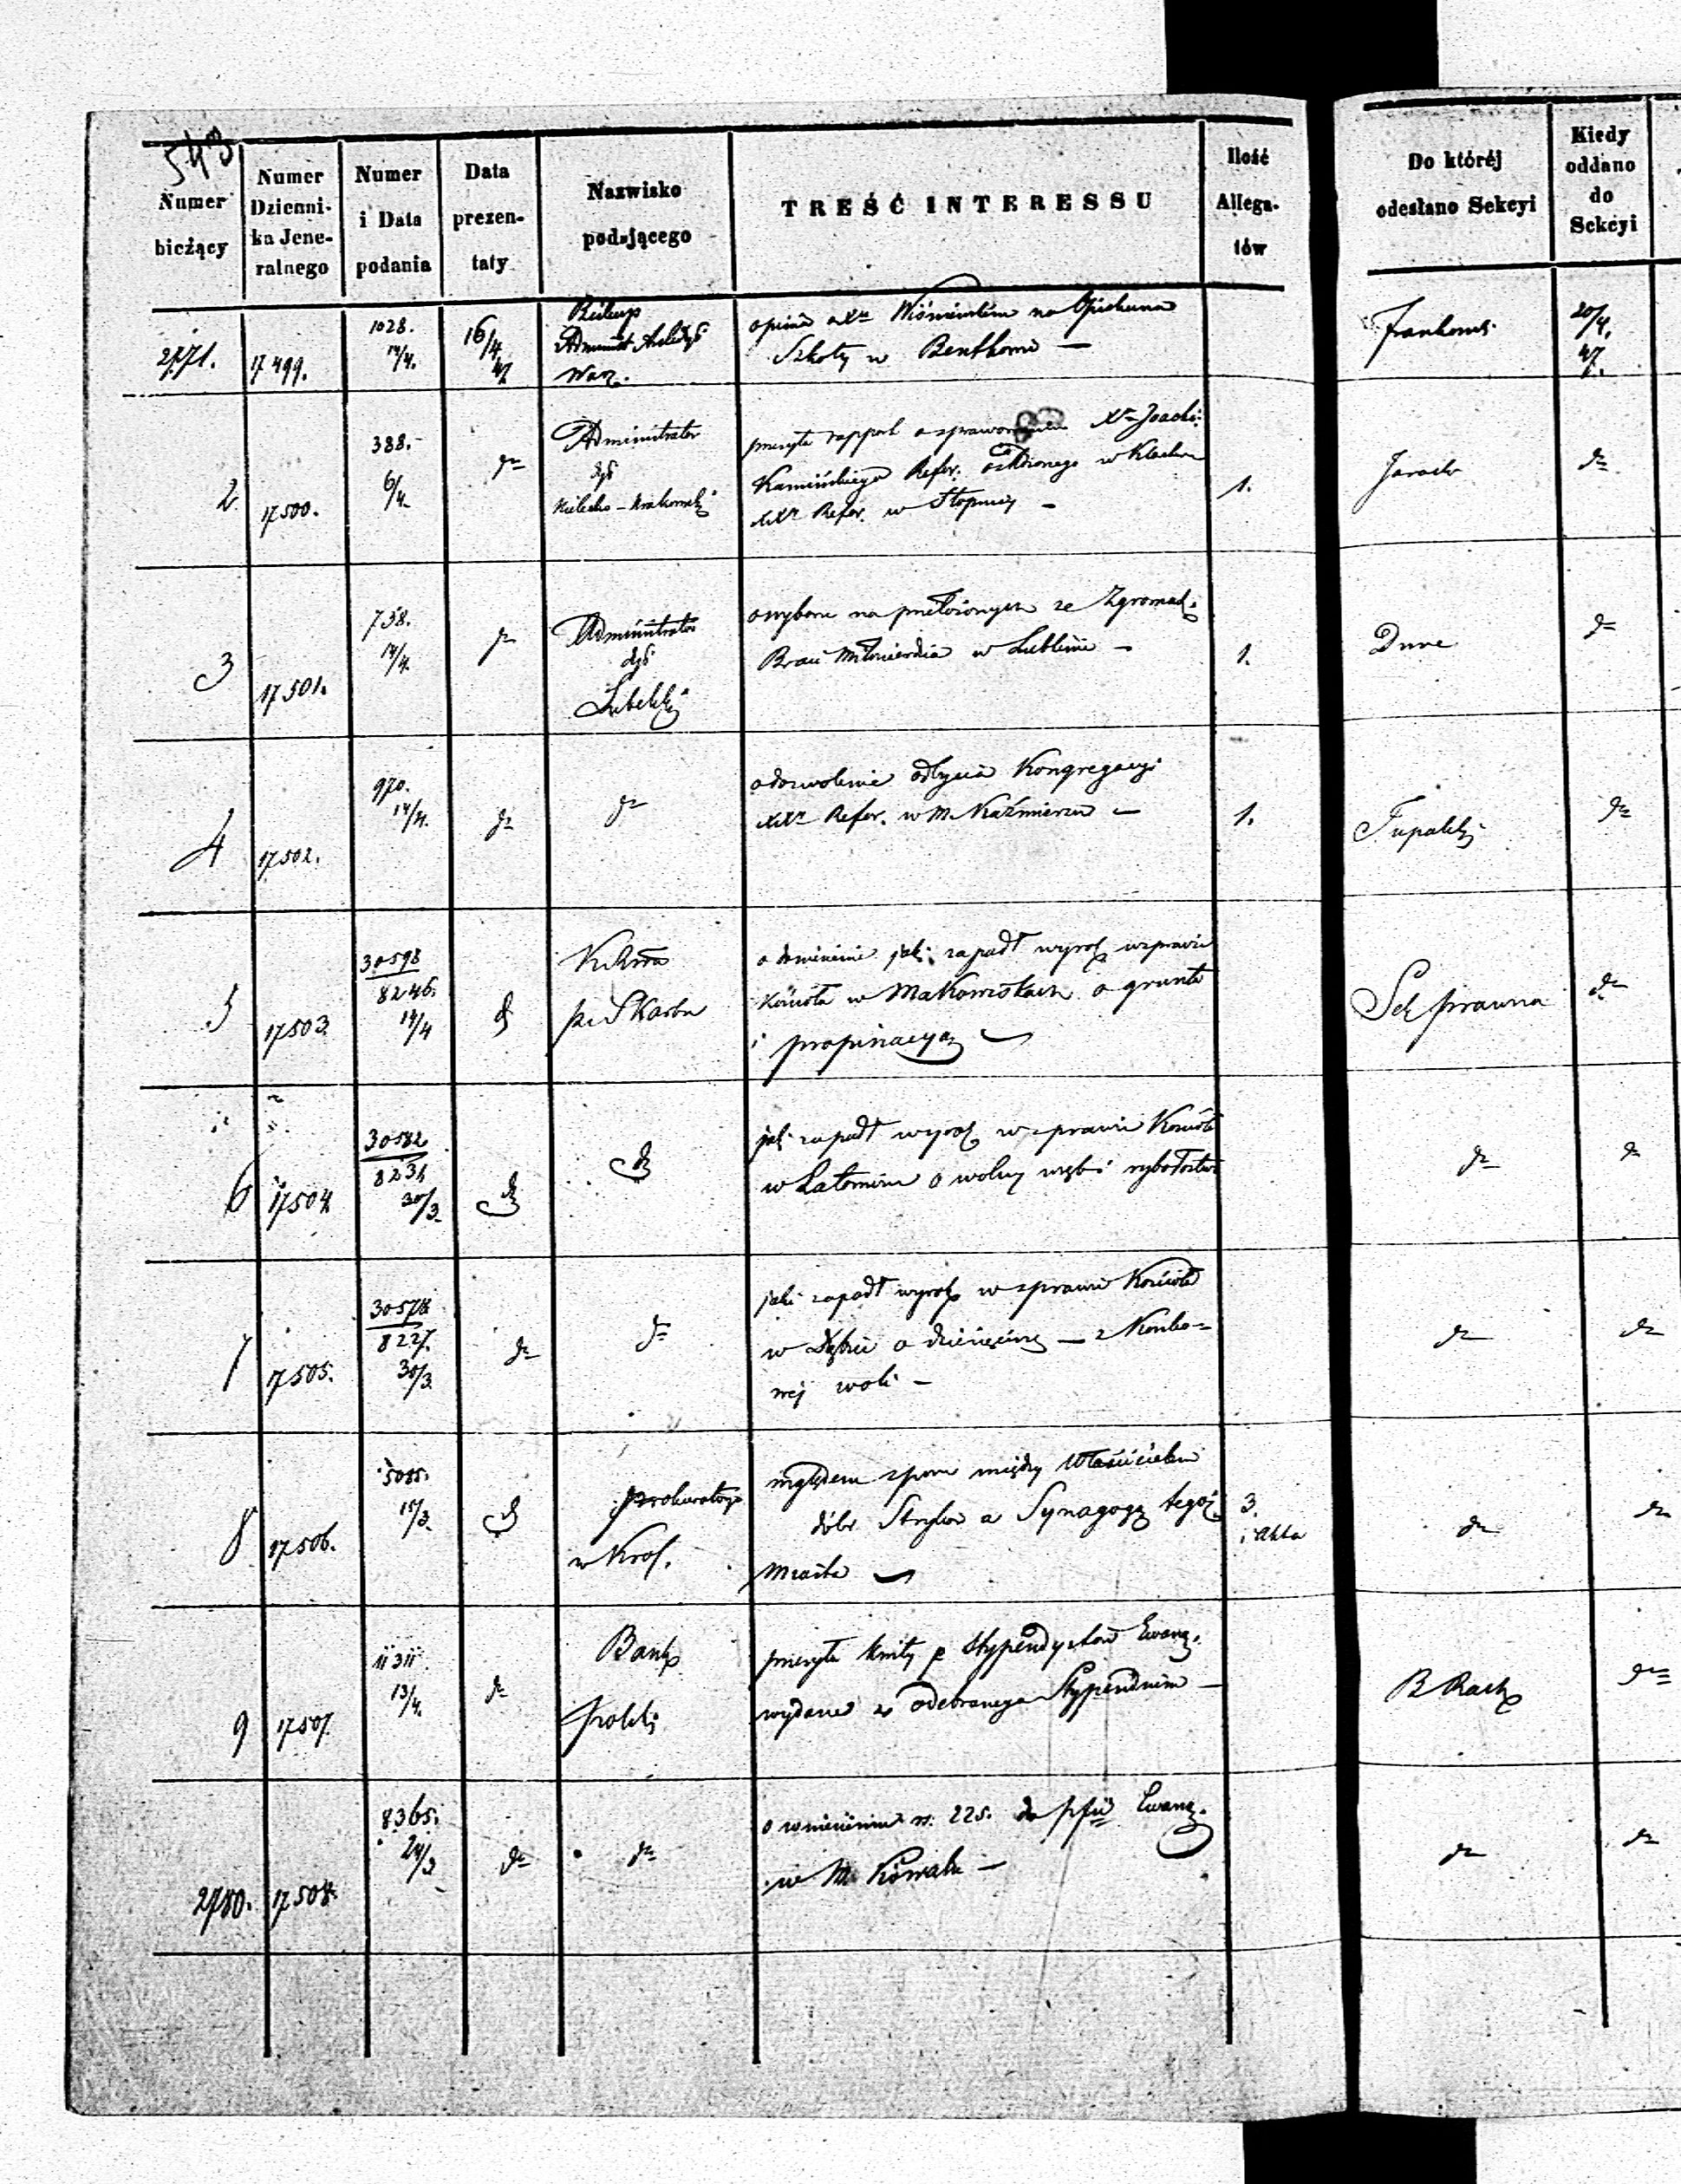 543
Numer bieżący
Numer Dzienni- ka Jene- ralnego
Numer i Data podania
Data prezen- taty
Nazwisko podającego
TREŚĆ INTERESSU
Ilość Allega- tów
Do któréj odesłano Sekcyi
Kiedy oddano do Sekcyi
2771. 17499. 1028. 14/4. 16/4 47
Biskup
Administ. Archidyi
Warz.
opinia o Xu na Opiekuna
Szkoły w
20/4. 47.
2 17500. 388.- 6/4. dº
Administrator
dyi
Kielecko-Krakowskiej
przesyła rapport o sprawowaniu Xa Joach:
Kamińskiego Refor. osadzonego w Klasztor
XXr Refor. w Stopnicy -
1. dº
3 17501. 758. 14/4. dº
Administrator
dyi
Lubelskiej
o wyborze na przełożonych ze Zgromadz.
Braci Miłosierdzia w Lublinie -
1. dº
4 17502. 970. 14/4. dº dº
o dozwolenie odbycia Kongregacyi
XXr Refor. w M. Kaźmierzu -
1. dº
5 17503. 30598/8246. 14/4 dº
K. Rzą
pr. Skarbu
o doniesienie jaki zapadł wyrok w sprawie
Kościoła w Makowiskach o grunta
i propinacyą
Sek prawna dº
6 17504. 30582/8231 30/3. dº dº
jaki zapadł wyrok w sprawie Kościoła
w Latowiczu o wolny wrąb i rybołostwo
dº dº
7 17505. 30578/8227. 30/3. dº dº
jaki zapadł wyrok w sprawie Kościoła
w Dębie o dziesięcinę - z
nej woli -
dº dº
8 17506. 5085. 15/3. dº
Prokuratorya
w Król.
względem sporu między Właścicielem
dóbr Stryków a Synagogą tegoż
Miasta
3. i Akta dº dº
9 17507. 11311. 13/4. dº
Bank
Polski
przesyła kwity p Stypendystów Ewang.
wydane z odebranego Stypendium -
B Rach dº
2780. 17508. 8365. 24/3 dº dº
o wniesieniu rs. 225. do pfii Ewang.
w M. Kowalu -
dº dº